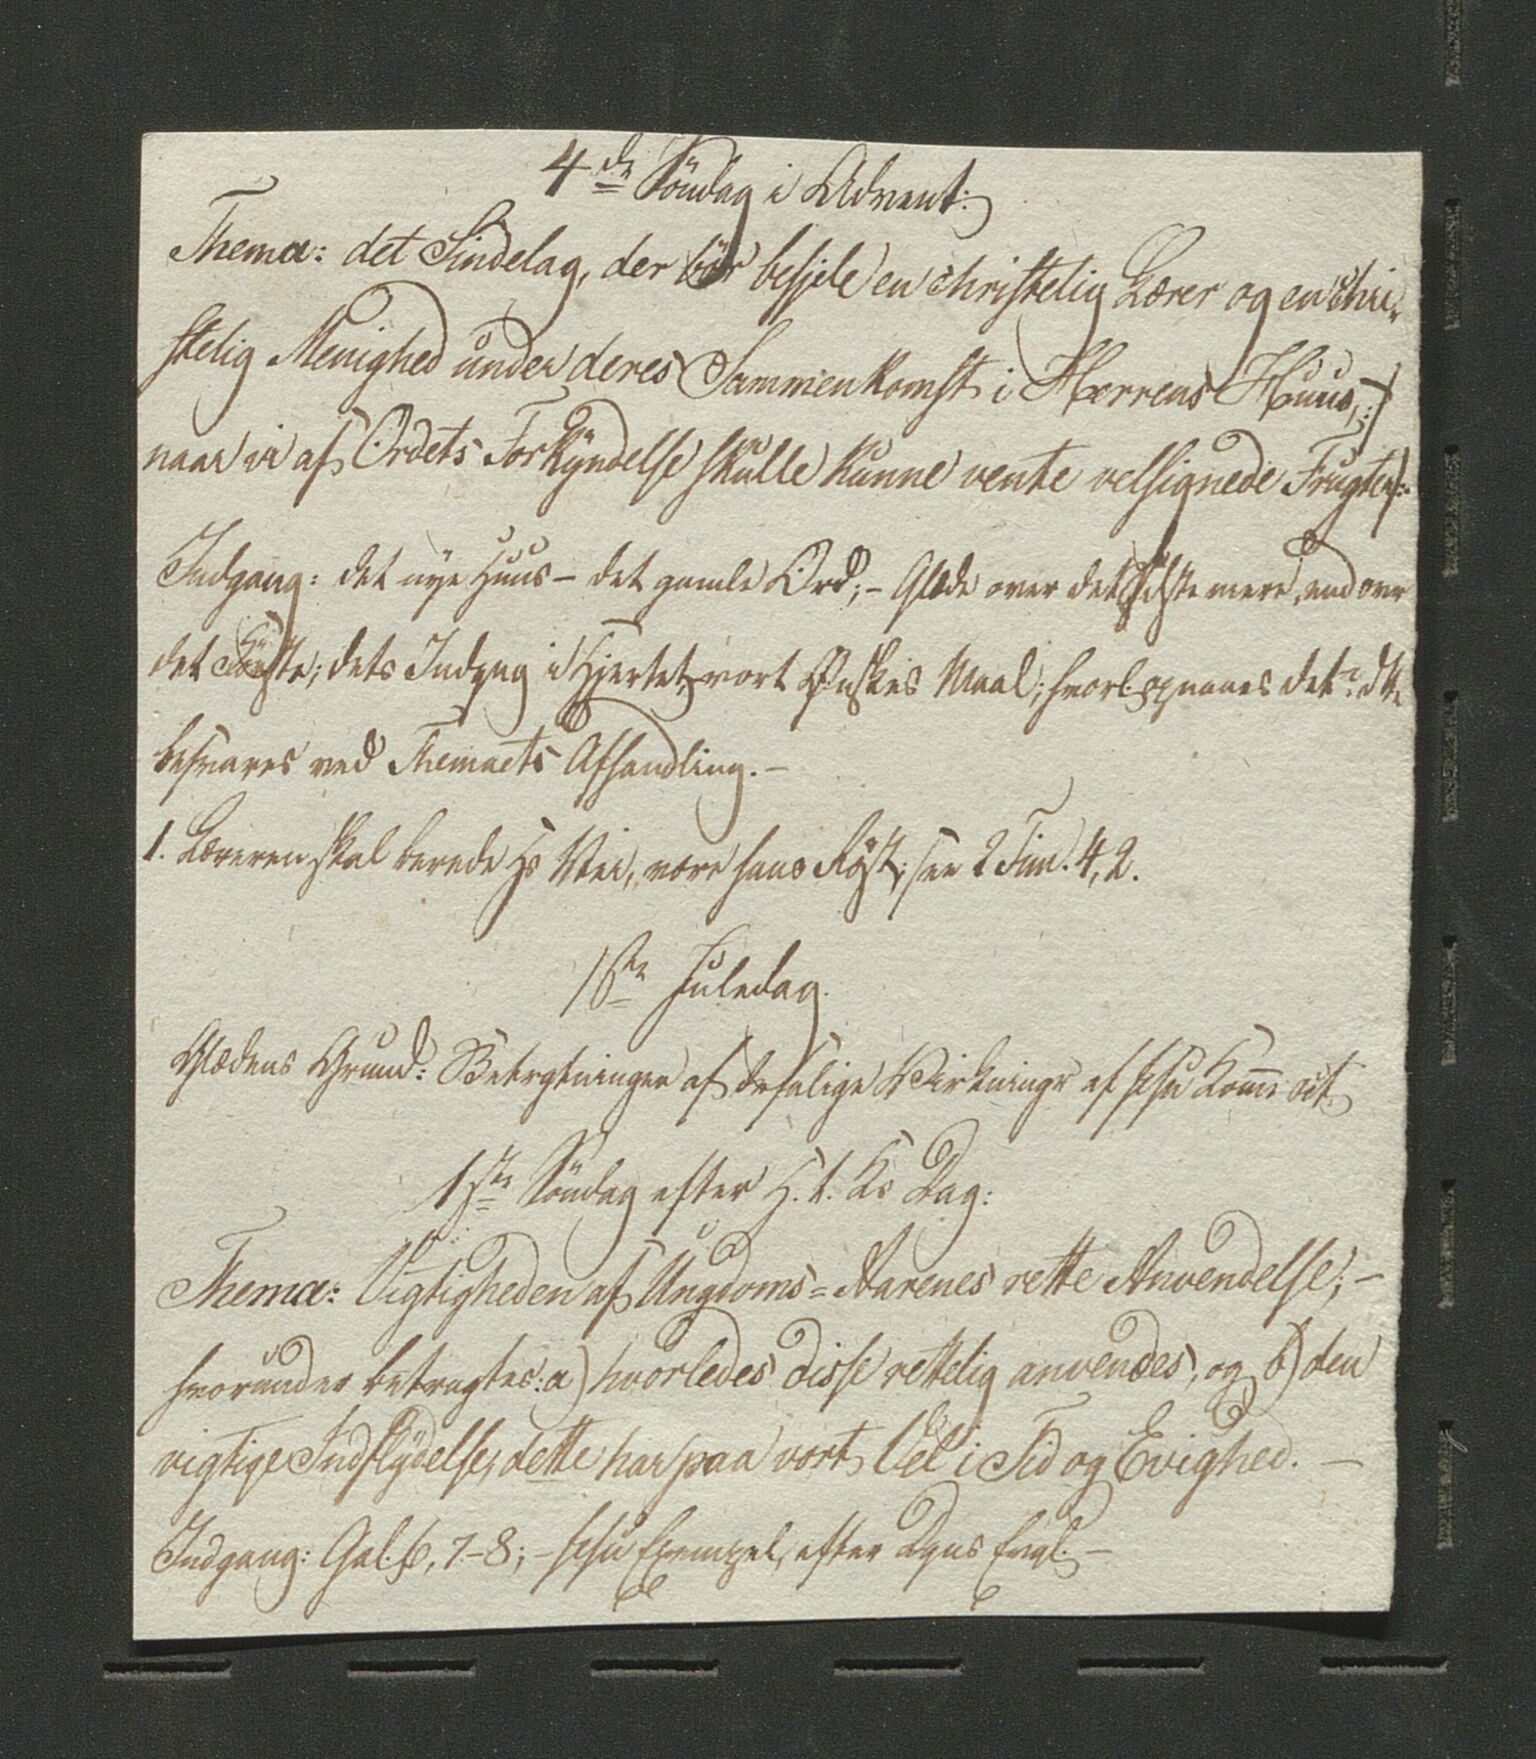 4de Söndag i Advent:
Thema: det Sindelag, der bör besjele en christelig Lærer og en chri-
stelig Menighed under deres Sammenkomst i Herrens Huus,
naar vi af Ordets Forkyndelse skulle kunne vente velsignede Frugter:
Indgang: det nye Huus – det gamle Ord; – Glæde over det Sidste mere, end over
det Første; dets Indgang i Hjertet, vort Ønskes Maal; hvorl. opnaaes det? dtte
besvares ved Themaets Afhandling. –
1. Læreren skal berede Hs Vei, være hans Røst; see 2 Tim. 4, 2.
1ste Juledag.
Glædens Grund: Betragtningen af de salige Virkninger af Jesu Komme
1ste Söndag efter H. t. Ks Dag:
Thema: Vigtigheden af Ungdoms-Aarenes rette Anvendelse; –
hvorunder betragtes: a) hvorledes disse rettelig anvendes, og b) den
vigtige Indflydelse, dette har paa vort Vel i Tid og Evighed. –
Indgang: Gal. 6, 7–8; – Jesu Exempel, efter Dgns Evgl. –